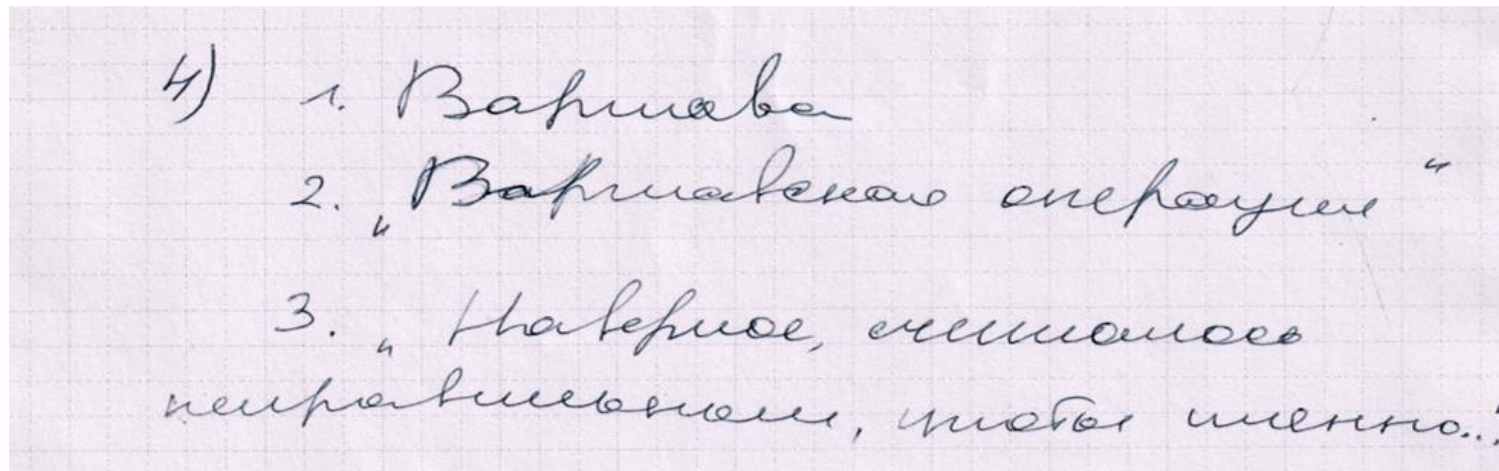 4) 1. Варшава
2. „Варшавская операция“
3. „Наверное, считалось
неправильным, чтобы именно...“